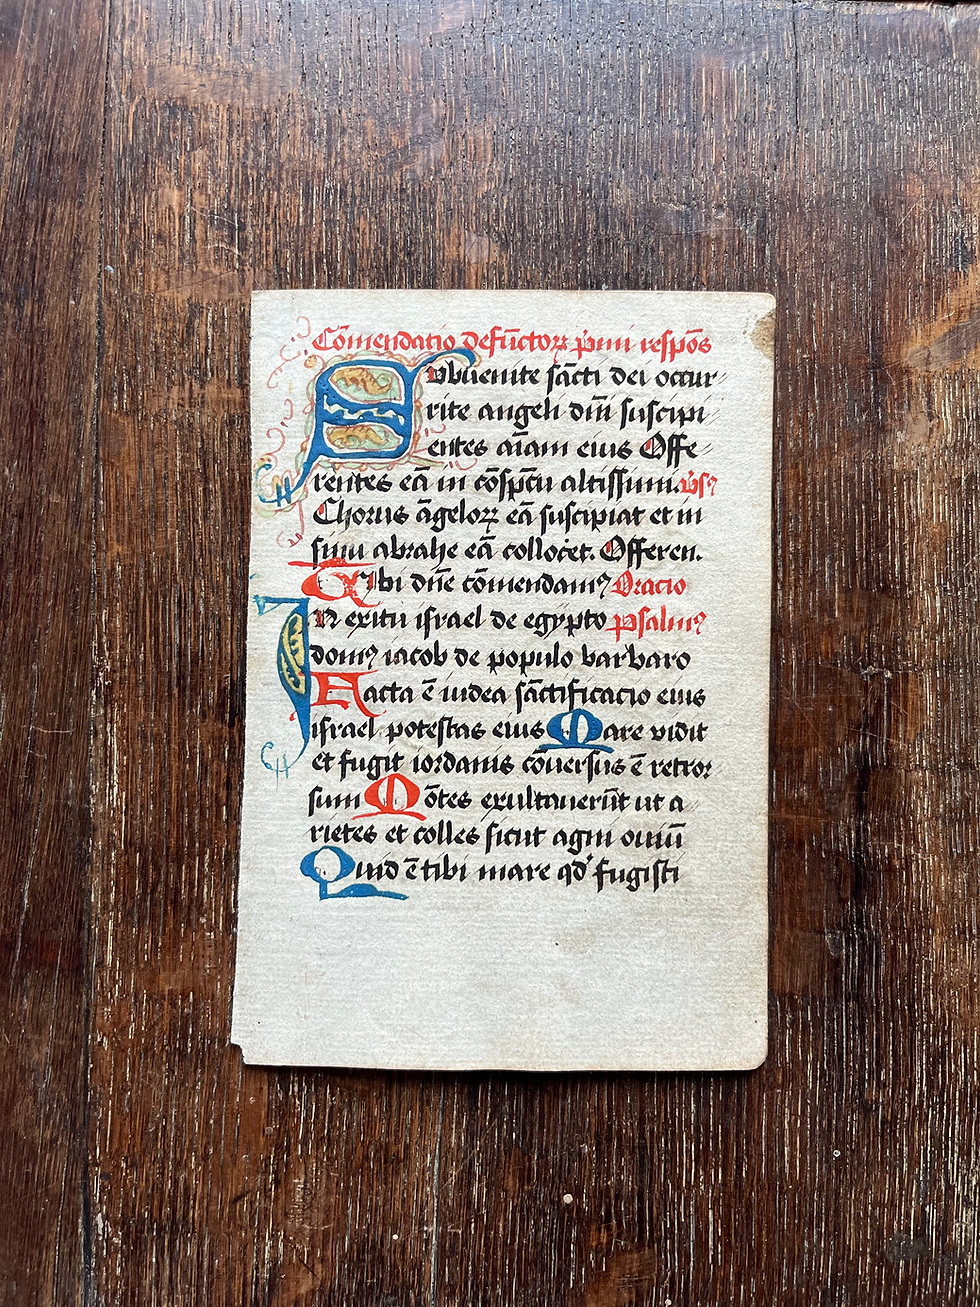 Cōmendatio defūctoꝝ p̄mi respōs
Subuenite sācti dei occur
rite angeli dn̄i suscipi
entes aīam eius Offe
rentes eā in cōsp̄cu altissimi. v̄sꝰ
Chorus āgeloꝝ eā suscipiat et in
sinu abrahe eā collocet. Offeren.
Tibi dn̄e cōmendamꝰ Oracio
IN exitu israel de egypto psalmꝰ
domꝰ iacob de populo barbaro
Facta ē iudea sāctificacio eius
israel potestas eius Mare vidit
et fugit iordanis cōuersus ē retror
sum Mōtes exultauerūt ut a
rietes et colles sicut agni ouiū
Quid ē tibi mare qd' fugisti